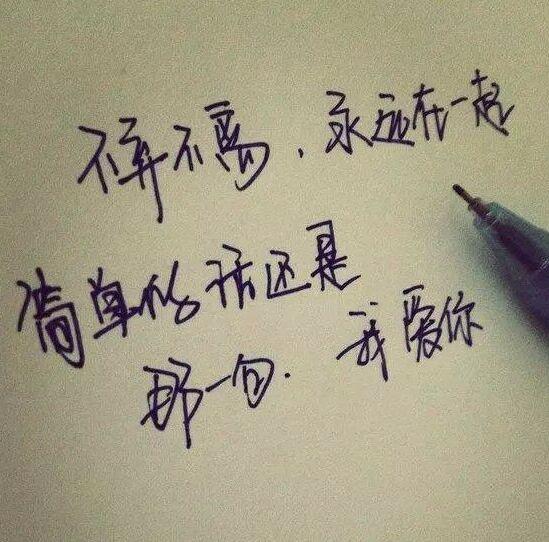 不弃不离.永远在一起
简单的话还是
那一句.我爱你